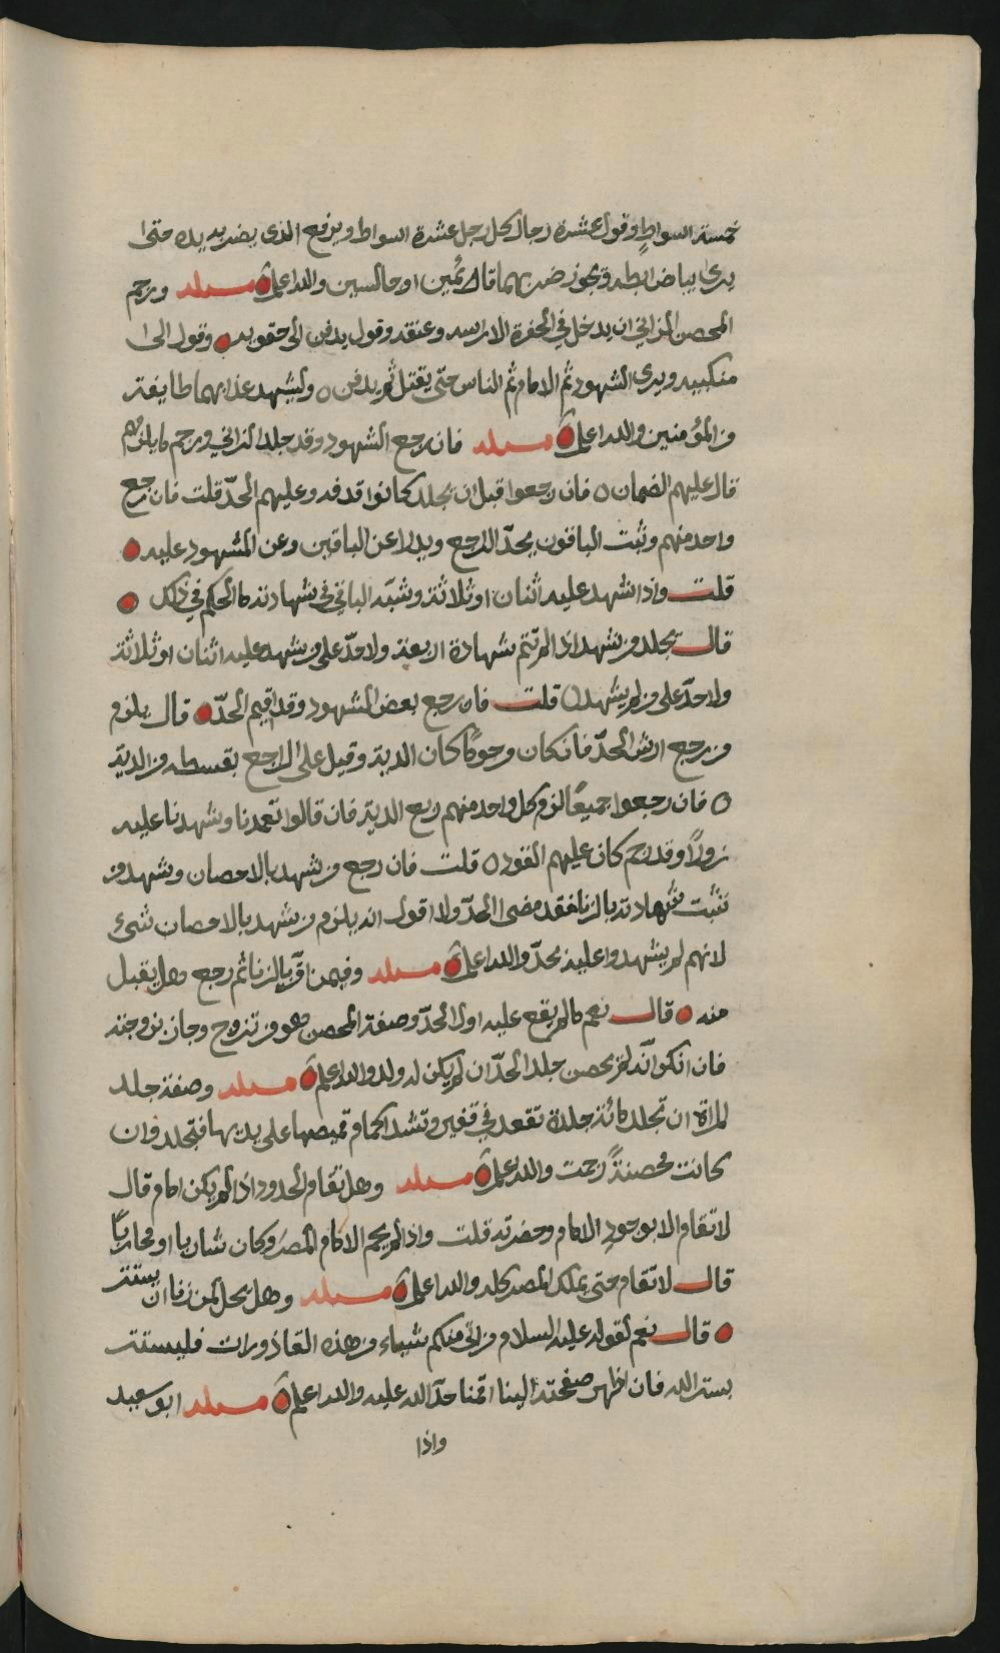 خمسة اسواط وقول عشرة رجال كل رجل عشرة اسواط ويرفع الذى يضربه يده حتى
يرى بياض ابطه ويجوز ضربهما قائمين او جالسين والله اعلم مسئلة ورجم
المحصن الزاني ان يدخل في الحفرة الا راسه وعنقه وقول يدفن الى حقويه وقول الى
منكبيه ويرى الشهود ثم الامام ثم الناس حتى يقتل ثم يدفن وليشهد عذابهما طايفة
من المؤمنين والله اعلم مسئلة فان رجع الشهود وقد جلد الزاني ورجم ما يلزمهم
قال عليهم الضمان فان رجعوا قبل ان يجلد كانوا قذفه وعليهم الحدّ قلت فان رجع
واحد منهم وثبت الباقون يحدّ الراجع ويدرا عن الباقين وعن المشهود عليه
قلت واذا شهد عليه اثنان او ثلاثة وشبّه الباقي في شهادته ما الحكم في ذلك
قال يجلد من شهد اذا لم تتم شهادة الاربعة ولا حدّ على من شهد عليه اثنان او ثلاثة
ولا حدّ على من لم يشهد قلت فان رجع بعض الشهود وقد اقيم الحدّ قال يلزم
من رجع ارش الحدّ فان كان مرجومًا كان الدية وقيل على الراجع بقسطه من الدية
فان رجعوا جميعًا لزم كل واحد منهم ربع الدية فان قالوا تعمدنا وشهدنا عليه
زورًا وقد رجم كان عليهم القود قلت فان رجع من شهد بالاحصان وشهد من
تثبت شهادته بالزنا فقد مضى الحدّ ولا اقول انه يلزم من يشهد بالاحصان شيء
لانهم لم يشهدوا عليه بحدّ والله اعلم مسئلة وفيمن اقرّ بالزنا ثم رجع هل يقبل
منه قال نعم ما لم يقع عليه اول الحدّ وصفة المحصن هو من تزوج وجاز بزوجته
فان انكر انّه لم يحصن جلد الحدّ ان لم يكن له ولد والله اعلم مسئلة وصفة جلد
المراة ان تجلد مائة جلدة تقعد في قفير وتشد اكمام قميصها على يديها فتجلد وان
كانت محصنةً رجمت والله اعلم مسئلة وهل تقام الحدود اذا لم يكن امام قال
لا تقام الا بوجود الامام وحضرته قلت واذا لم يحم الامام المصر وكان شاريا او محاربًا
قال لا تقام حتى يملك المصر كله والله اعلم مسئلة وهل يحل لمن زنا ان يستتر
قال نعم لقوله عليه السلام من اتى منكم شيياء من هذه القاذورات فليستتر
بستر الله فان اظهر صفحته الينا اقمنا حدّ الله عليه والله اعلم مسئلة ابو سعيد
واذا